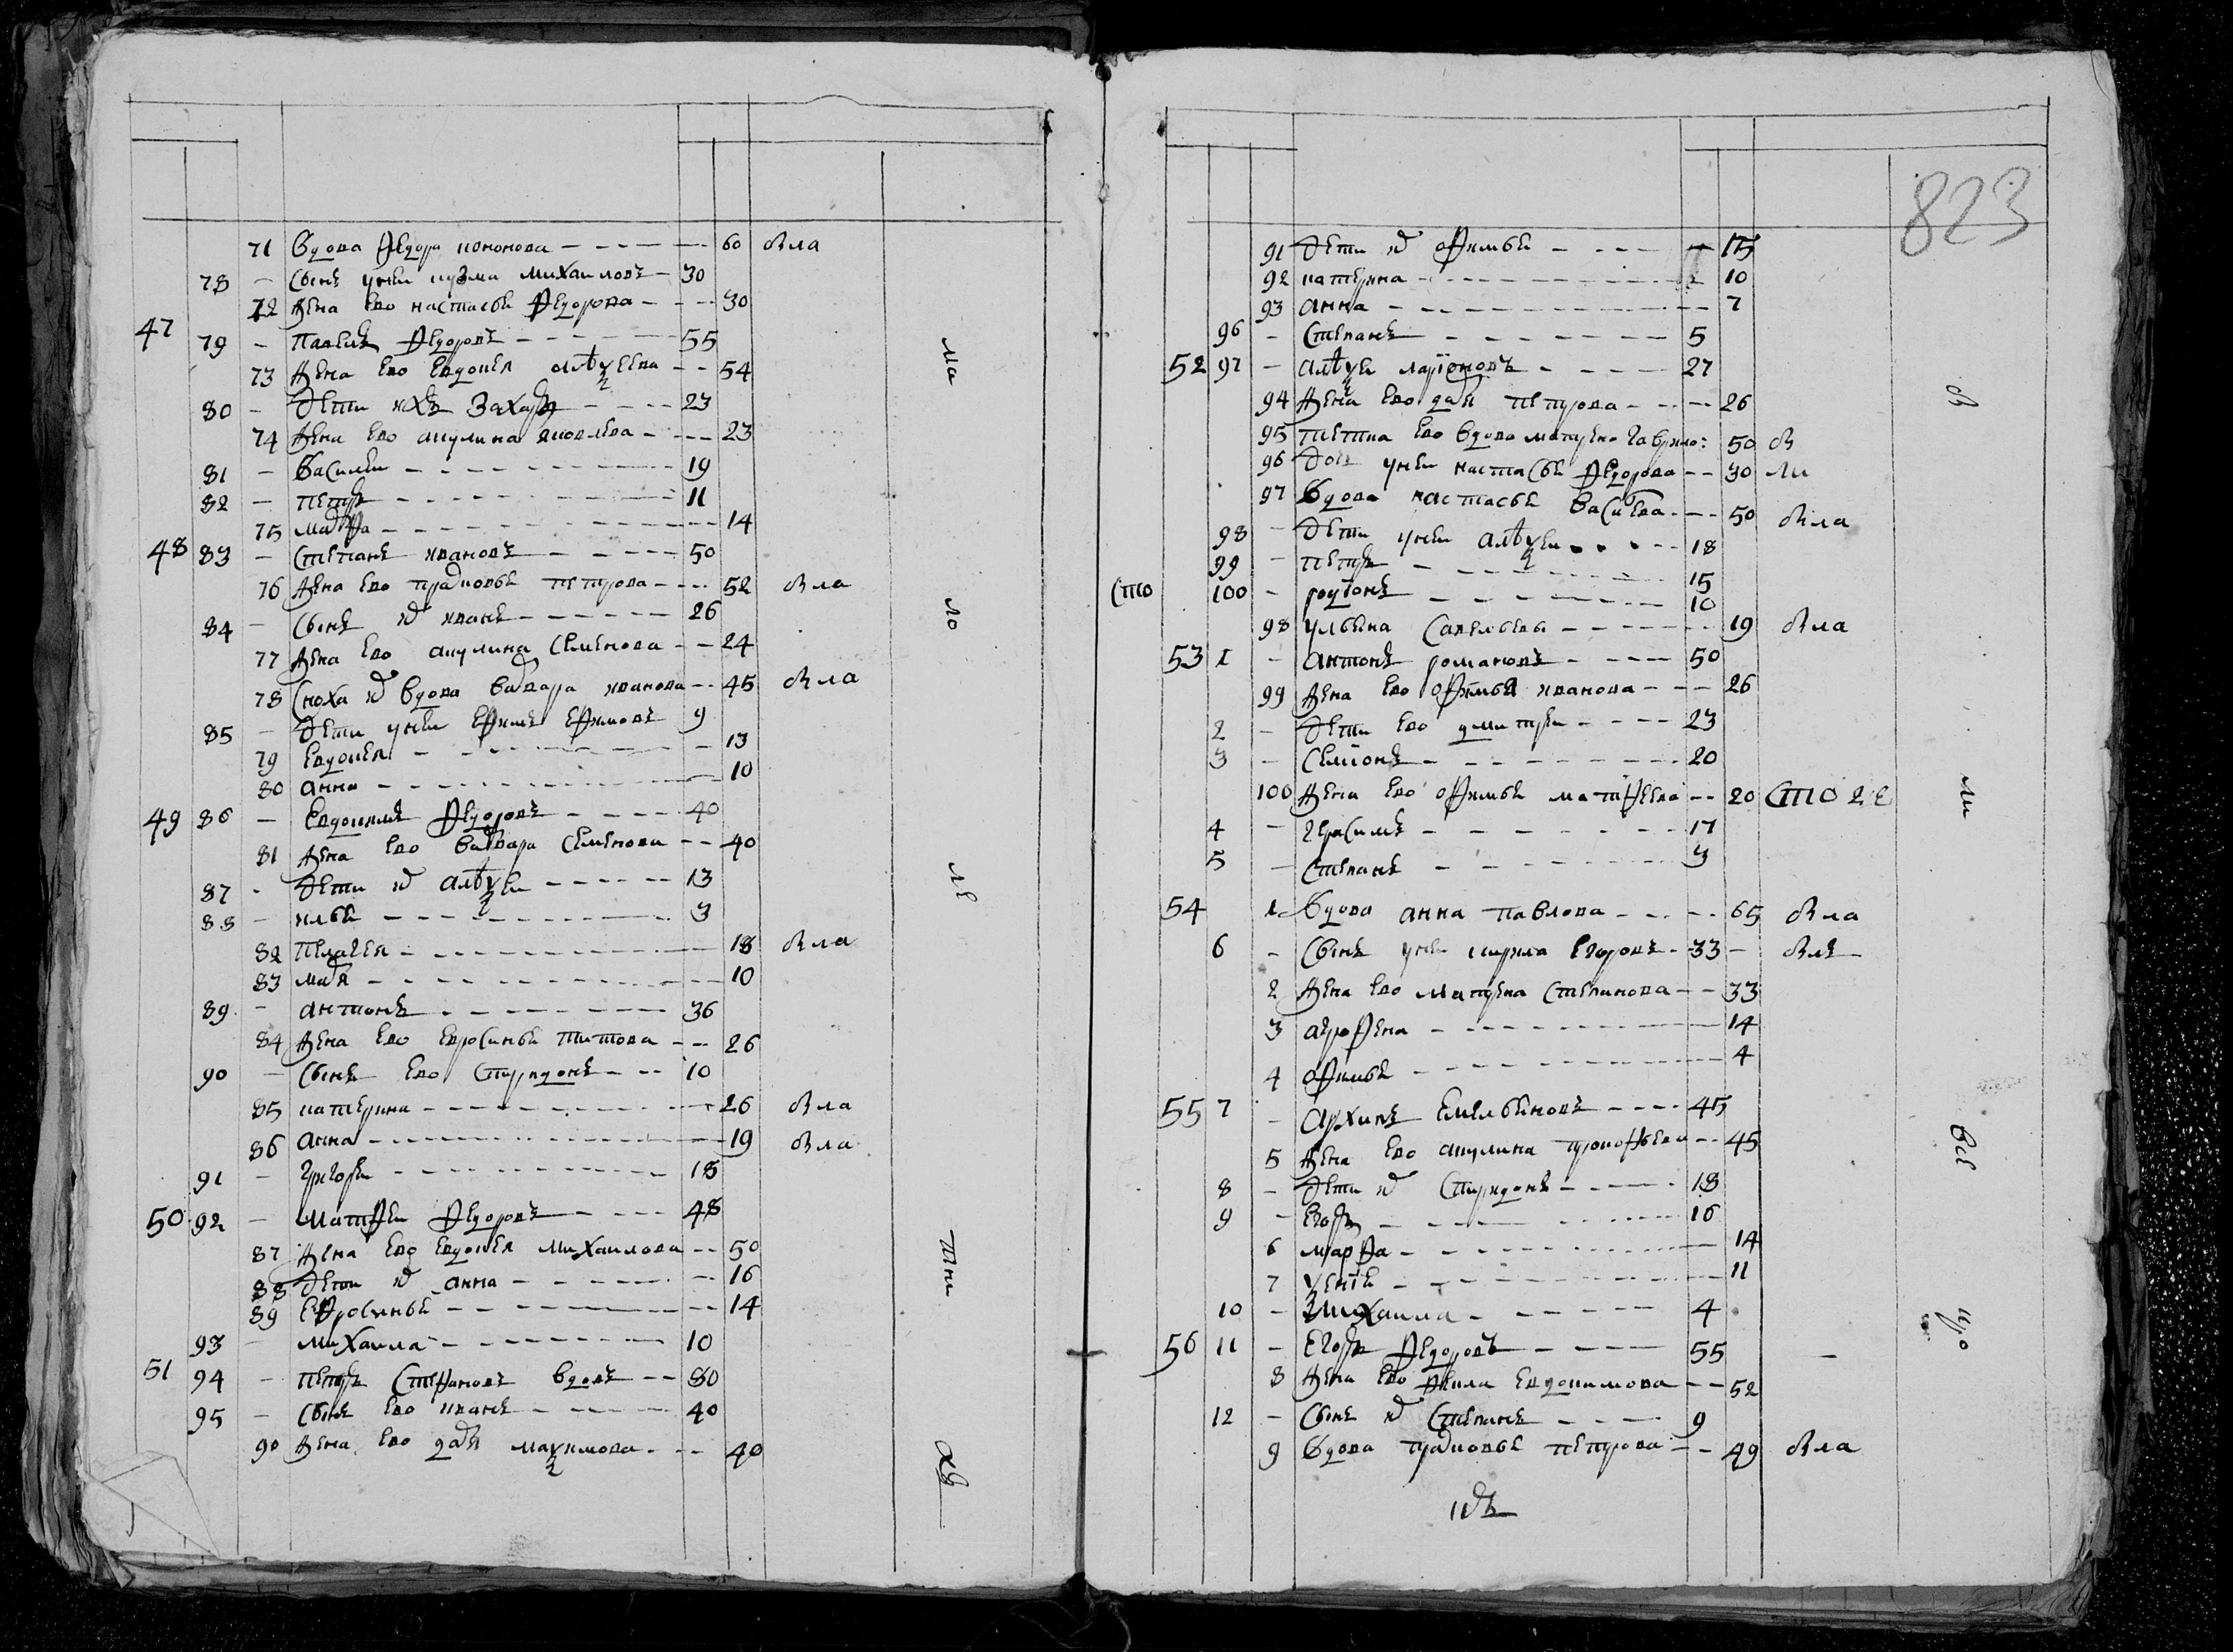 71 вдова федора кононова 60 вла
78 - сынъ унеи кузма михаиловъ 30
72 жена ево настасья федорова 30
47 79 - павелъ федоровъ 55
73 жена ево евдокея алѣѯеева 54
80 - дети ихъ захаръ 23
74 жена ево акулина яковлева 23
81 - василеи 19
82 - петръ 11
75 марфа 14
48 83 - степанъ ивановъ 50
76 жена ево прасковья петрова 52 вла
84 - сынъ их иванъ 26
77 жена ево акулина семенова 24
78 сноха их вдова варвара иванова 45 вла
85 - дети унеи ефимъ ефимовъ 9
79 евдокея 13
80 анна 10
49 86 - евдокимъ федоровъ 40
81 жена ево варвара семенова 40
87 - дети их алѣѯеи 13
88 - илья 3
82 пелагея 18 вла
83 марья 10
89 - антонъ 36
84 жена ево евросинья титова 26
90 - сынъ ево спиридонъ 10
85 катерина 26 вла
86 анна 19 вла
91 - григореи 18
50 92 - матфеи федоровъ 48
87 жена ево евдокея михаилова 50
88 дети их анна 16
89 ефросинья 14
93 - михаила 10
51 94 - петръ степановъ вдовъ 80
95 - сынъ ево иванъ 40
90 жена ево дарья маѯимова 40
ма
ло
ле
тни
хъ
823
91 дети их офимья 15
92 катерина 10
93 анна 7
96 - степанъ 5
52 97 - алѣѯеи ларïоновъ 27
94 жена ево дарья петрова 26
95 тетка ево вдова матрена гаврило: 50 в
96 дочь унеи настасья федорова 30 ли
97 вдова настасья васильева 50 вла
98 - дети унеи алѣѯеи 18
99 - петръ 15
сто 100 - родïонъ 10
98 ульяна савельева 19 вла
53 1 - антонъ романовъ 50
99 жена ево офимья иванова 26
2 - дети ево дмитреи 23
3 - семïонъ 20
100 жена ево офимья матфеева 20 сто 2 е
4 - герасимъ 17
5 - степанъ 9
54 1 вдова анна павлова 65 вла
6 - сынъ унеи кирила егоровъ 33 - влѣ
2 жена ево матрена степанова 33
3 агрофена 14
4 офимья 4
55 7 - архипъ емельяновъ 45
5 жена ево акулина прокофьева 45
8 - дети их спиридонъ 18
9 - егоръ 16
6 марфа 14
7 ѯенïя 11
10 - михаила 4
56 11 - егоръ федоровъ 55 -
8 жена ево фекла евдокимова 52
12 - сынъ их степанъ 9
9 вдова прасковья петрова 49 вла
в
ли
все
кро